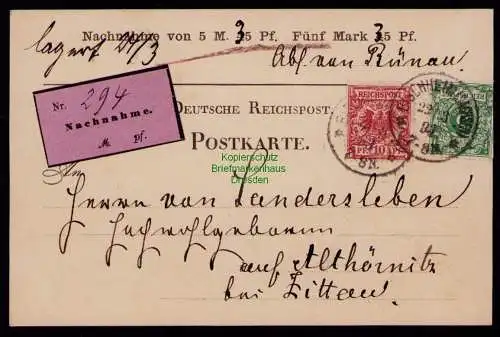 Nachnahme von 5 M. 35 Pf. Fünf Mark 35 Pf.
lagert 29/3
Abs. von Bünau.
Nr. 294
Nachnahme.
M. Pf.
DEUTSCHE REICHSPOST.
POSTKARTE.
REICHSPOST
PF 10 PF
8N.
Kopierschutz
Briefmarkenhaus
Dresden
An
Herrn von Sandersleben
Hochwohlgeboren
auf Althörnitz
bei Zittau